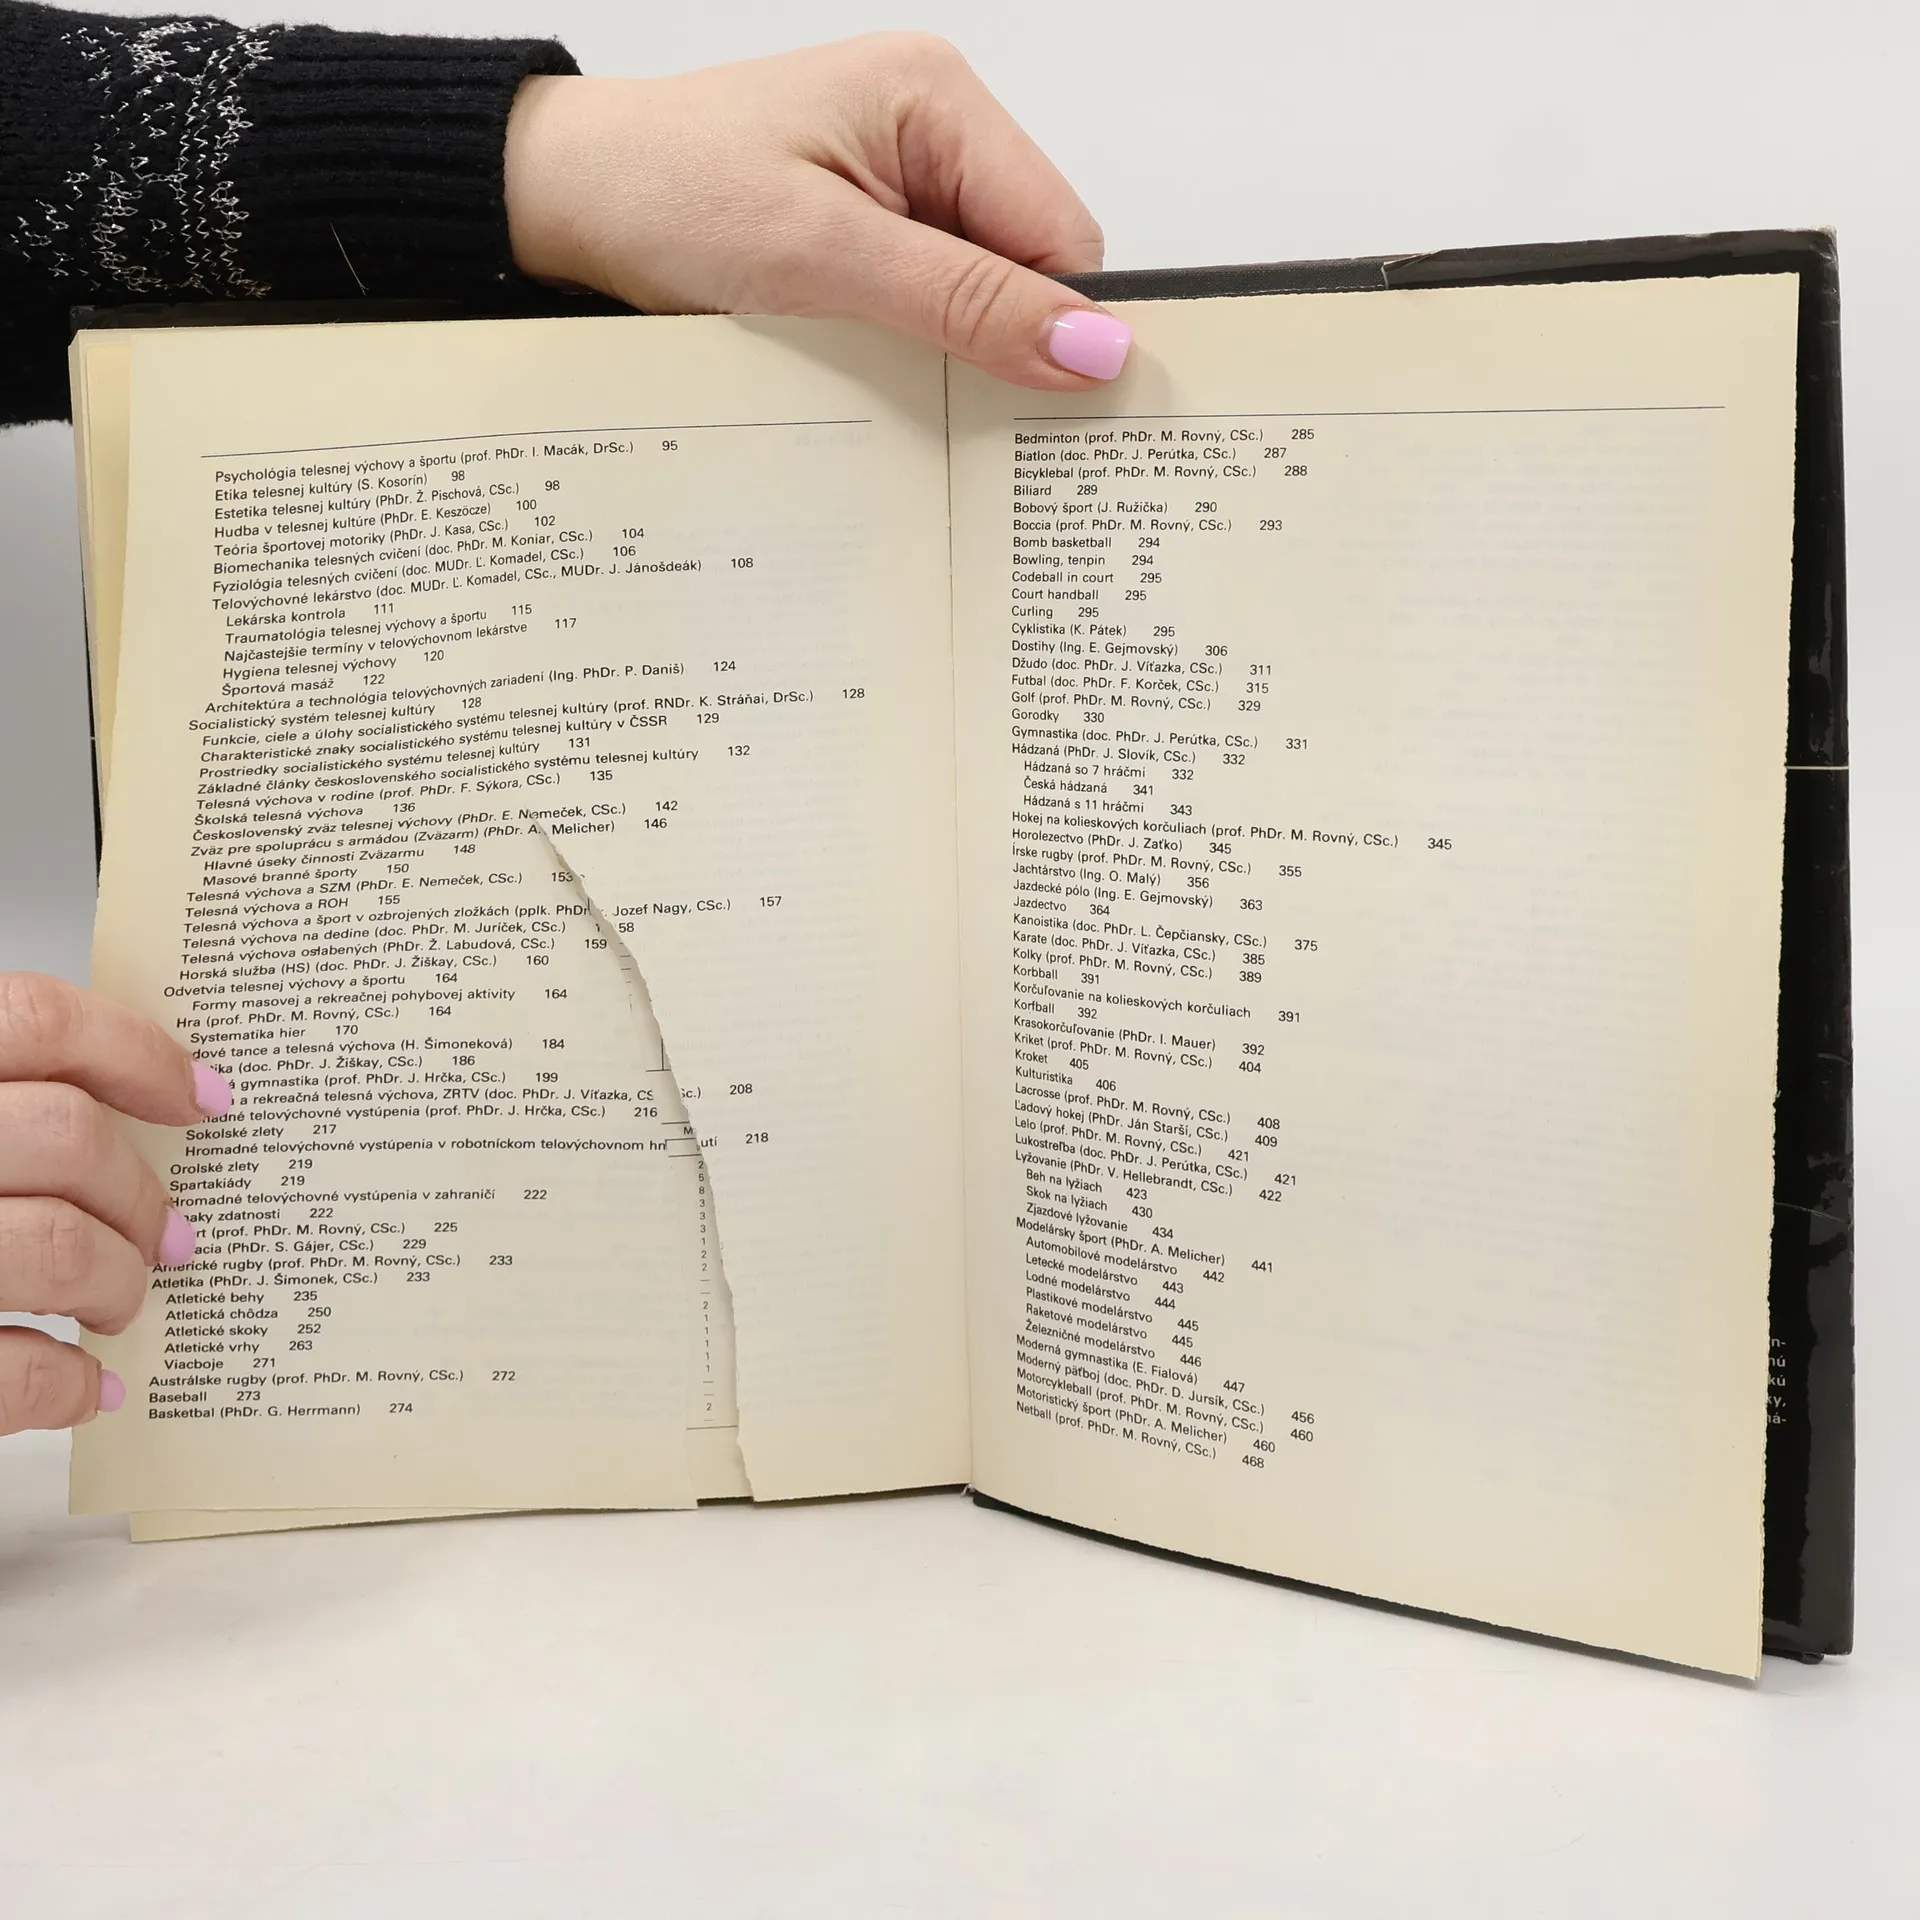 Psychológia telesnej výchovy a športu (prof. PhDr. I. Macák, DrSc.) 95
Etika telesnej kultúry (S. Kosorín) 98
Estetika telesnej kultúry (PhDr. Ž. Pischová, CSc.) 98
Hudba v telesnej kultúre (PhDr. E. Keszöcze) 100
Teória športovej motoriky (PhDr. J. Kasa, CSc.) 102
Biomechanika telesných cvičení (doc. PhDr. M. Koniar, CSc.) 104
Fyziológia telesných cvičení (doc. MUDr. Ľ. Komadel, CSc.) 106
Telovýchovné lekárstvo (doc. MUDr. Ľ. Komadel, CSc., MUDr. J. Jánošdeák) 108
Lekárska kontrola 111
Traumatológia telesnej výchovy a športu 115
Najčastejšie termíny v telovýchovnom lekárstve 117
Hygiena telesnej výchovy 120
Športová masáž 122
Architektúra a technológia telovýchovných zariadení (Ing. PhDr. P. Daniš) 124
Socialistický systém telesnej kultúry 128
Funkcie, ciele a úlohy socialistického systému telesnej kultúry (prof. RNDr. K. Stráňai, DrSc.) 128
Charakteristické znaky socialistického systému telesnej kultúry v ČSSR 129
Prostriedky socialistického systému telesnej kultúry 131
Základné články československého socialistického systému telesnej kultúry 132
Telesná výchova v rodine (prof. PhDr. F. Sýkora, CSc.) 135
Školská telesná výchova 136
Československý zväz telesnej výchovy (PhDr. E. Nemeček, CSc.) 142
Zväz pre spoluprácu s armádou (Zväzarm) (PhDr. A. Melicher) 146
Hlavné úseky činnosti Zväzarmu 148
Masové branné športy 150
Telesná výchova a SZM (PhDr. E. Nemeček, CSc.) 153
Telesná výchova a ROH 155
Telesná výchova a šport v ozbrojených zložkách (pplk. PhDr. Jozef Nagy, CSc.) 157
Telesná výchova na dedine (doc. PhDr. M. Juríček, CSc.) 158
Telesná výchova oslabených (PhDr. Ž. Labudová, CSc.) 159
Horská služba (HS) (doc. PhDr. J. Žiškay, CSc.) 160
Odvetvia telesnej výchovy a športu 164
Formy masovej a rekreačnej pohybovej aktivity 164
Hra (prof. PhDr. M. Rovný, CSc.) 164
Systematika hier 170
dové tance a telesná výchova (H. Šimoneková) 184
tika (doc. PhDr. J. Žiškay, CSc.) 186
á gymnastika (prof. PhDr. J. Hrčka, CSc.) 199
a rekreačná telesná výchova, ZRTV (doc. PhDr. J. Víťazka, CSc.) 208
adné telovýchovné vystúpenia (prof. PhDr. J. Hrčka, CSc.) 216
Sokolské zlety 217
Hromadné telovýchovné vystúpenia v robotníckom telovýchovnom hnutí 218
Orolské zlety 219
Spartakiády 219
Hromadné telovýchovné vystúpenia v zahraničí 222
naky zdatnosti 222
rt (prof. PhDr. M. Rovný, CSc.) 225
acia (PhDr. S. Gájer, CSc.) 229
Americké rugby (prof. PhDr. M. Rovný, CSc.) 233
Atletika (PhDr. J. Šimonek, CSc.) 233
Atletické behy 235
Atletická chôdza 250
Atletické skoky 252
Atletické vrhy 263
Viacboje 271
Austrálske rugby (prof. PhDr. M. Rovný, CSc.) 272
Baseball 273
Basketbal (PhDr. G. Herrmann) 274
M
2
5
8
3
3
3
1
2
2
—
2
1
1
1
1
1
—
2
—
Bedminton (prof. PhDr. M. Rovný, CSc.) 285
Biatlon (doc. PhDr. J. Perútka, CSc.) 287
Bicyklebal (prof. PhDr. M. Rovný, CSc.) 288
Biliard 289
Bobový šport (J. Ružička) 290
Boccia (prof. PhDr. M. Rovný, CSc.) 293
Bomb basketball 294
Bowling, tenpin 294
Codeball in court 295
Court handball 295
Curling 295
Cyklistika (K. Pátek) 295
Dostihy (Ing. E. Gejmovský) 306
Džudo (doc. PhDr. J. Víťazka, CSc.) 311
Futbal (doc. PhDr. F. Korček, CSc.) 315
Golf (prof. PhDr. M. Rovný, CSc.) 329
Gorodky 330
Gymnastika (doc. PhDr. J. Perútka, CSc.) 331
Hádzaná (PhDr. J. Slovík, CSc.) 332
Hádzaná so 7 hráčmi 332
Česká hádzaná 341
Hádzaná s 11 hráčmi 343
Hokej na kolieskových korčuliach (prof. PhDr. M. Rovný, CSc.) 345
Horolezectvo (PhDr. J. Zaťko) 345
Írske rugby (prof. PhDr. M. Rovný, CSc.) 355
Jachtárstvo (Ing. O. Malý) 356
Jazdecké pólo (Ing. E. Gejmovský) 363
Jazdectvo 364
Kanoistika (doc. PhDr. L. Čepčiansky, CSc.) 375
Karate (doc. PhDr. J. Víťazka, CSc.) 385
Kolky (prof. PhDr. M. Rovný, CSc.) 389
Korbball 391
Korčuľovanie na kolieskových korčuliach 391
Korfball 392
Krasokorčuľovanie (PhDr. I. Mauer) 392
Kriket (prof. PhDr. M. Rovný, CSc.) 404
Kroket 405
Kulturistika 406
Lacrosse (prof. PhDr. M. Rovný, CSc.) 408
Ľadový hokej (PhDr. Ján Starší, CSc.) 409
Lelo (prof. PhDr. M. Rovný, CSc.) 421
Lukostreľba (doc. PhDr. J. Perútka, CSc.) 421
Lyžovanie (PhDr. V. Hellebrandt, CSc.) 422
Beh na lyžiach 423
Skok na lyžiach 430
Zjazdové lyžovanie 434
Modelársky šport (PhDr. A. Melicher) 441
Automobilové modelárstvo 442
Letecké modelárstvo 443
Lodné modelárstvo 444
Plastikové modelárstvo 445
Raketové modelárstvo 445
Železničné modelárstvo 446
Moderná gymnastika (E. Fialová) 447
Moderný päťboj (doc. PhDr. D. Jursík, CSc.) 456
Motorcykleball (prof. PhDr. M. Rovný, CSc.) 460
Motoristický šport (PhDr. A. Melicher) 460
Netball (prof. PhDr. M. Rovný, CSc.) 468